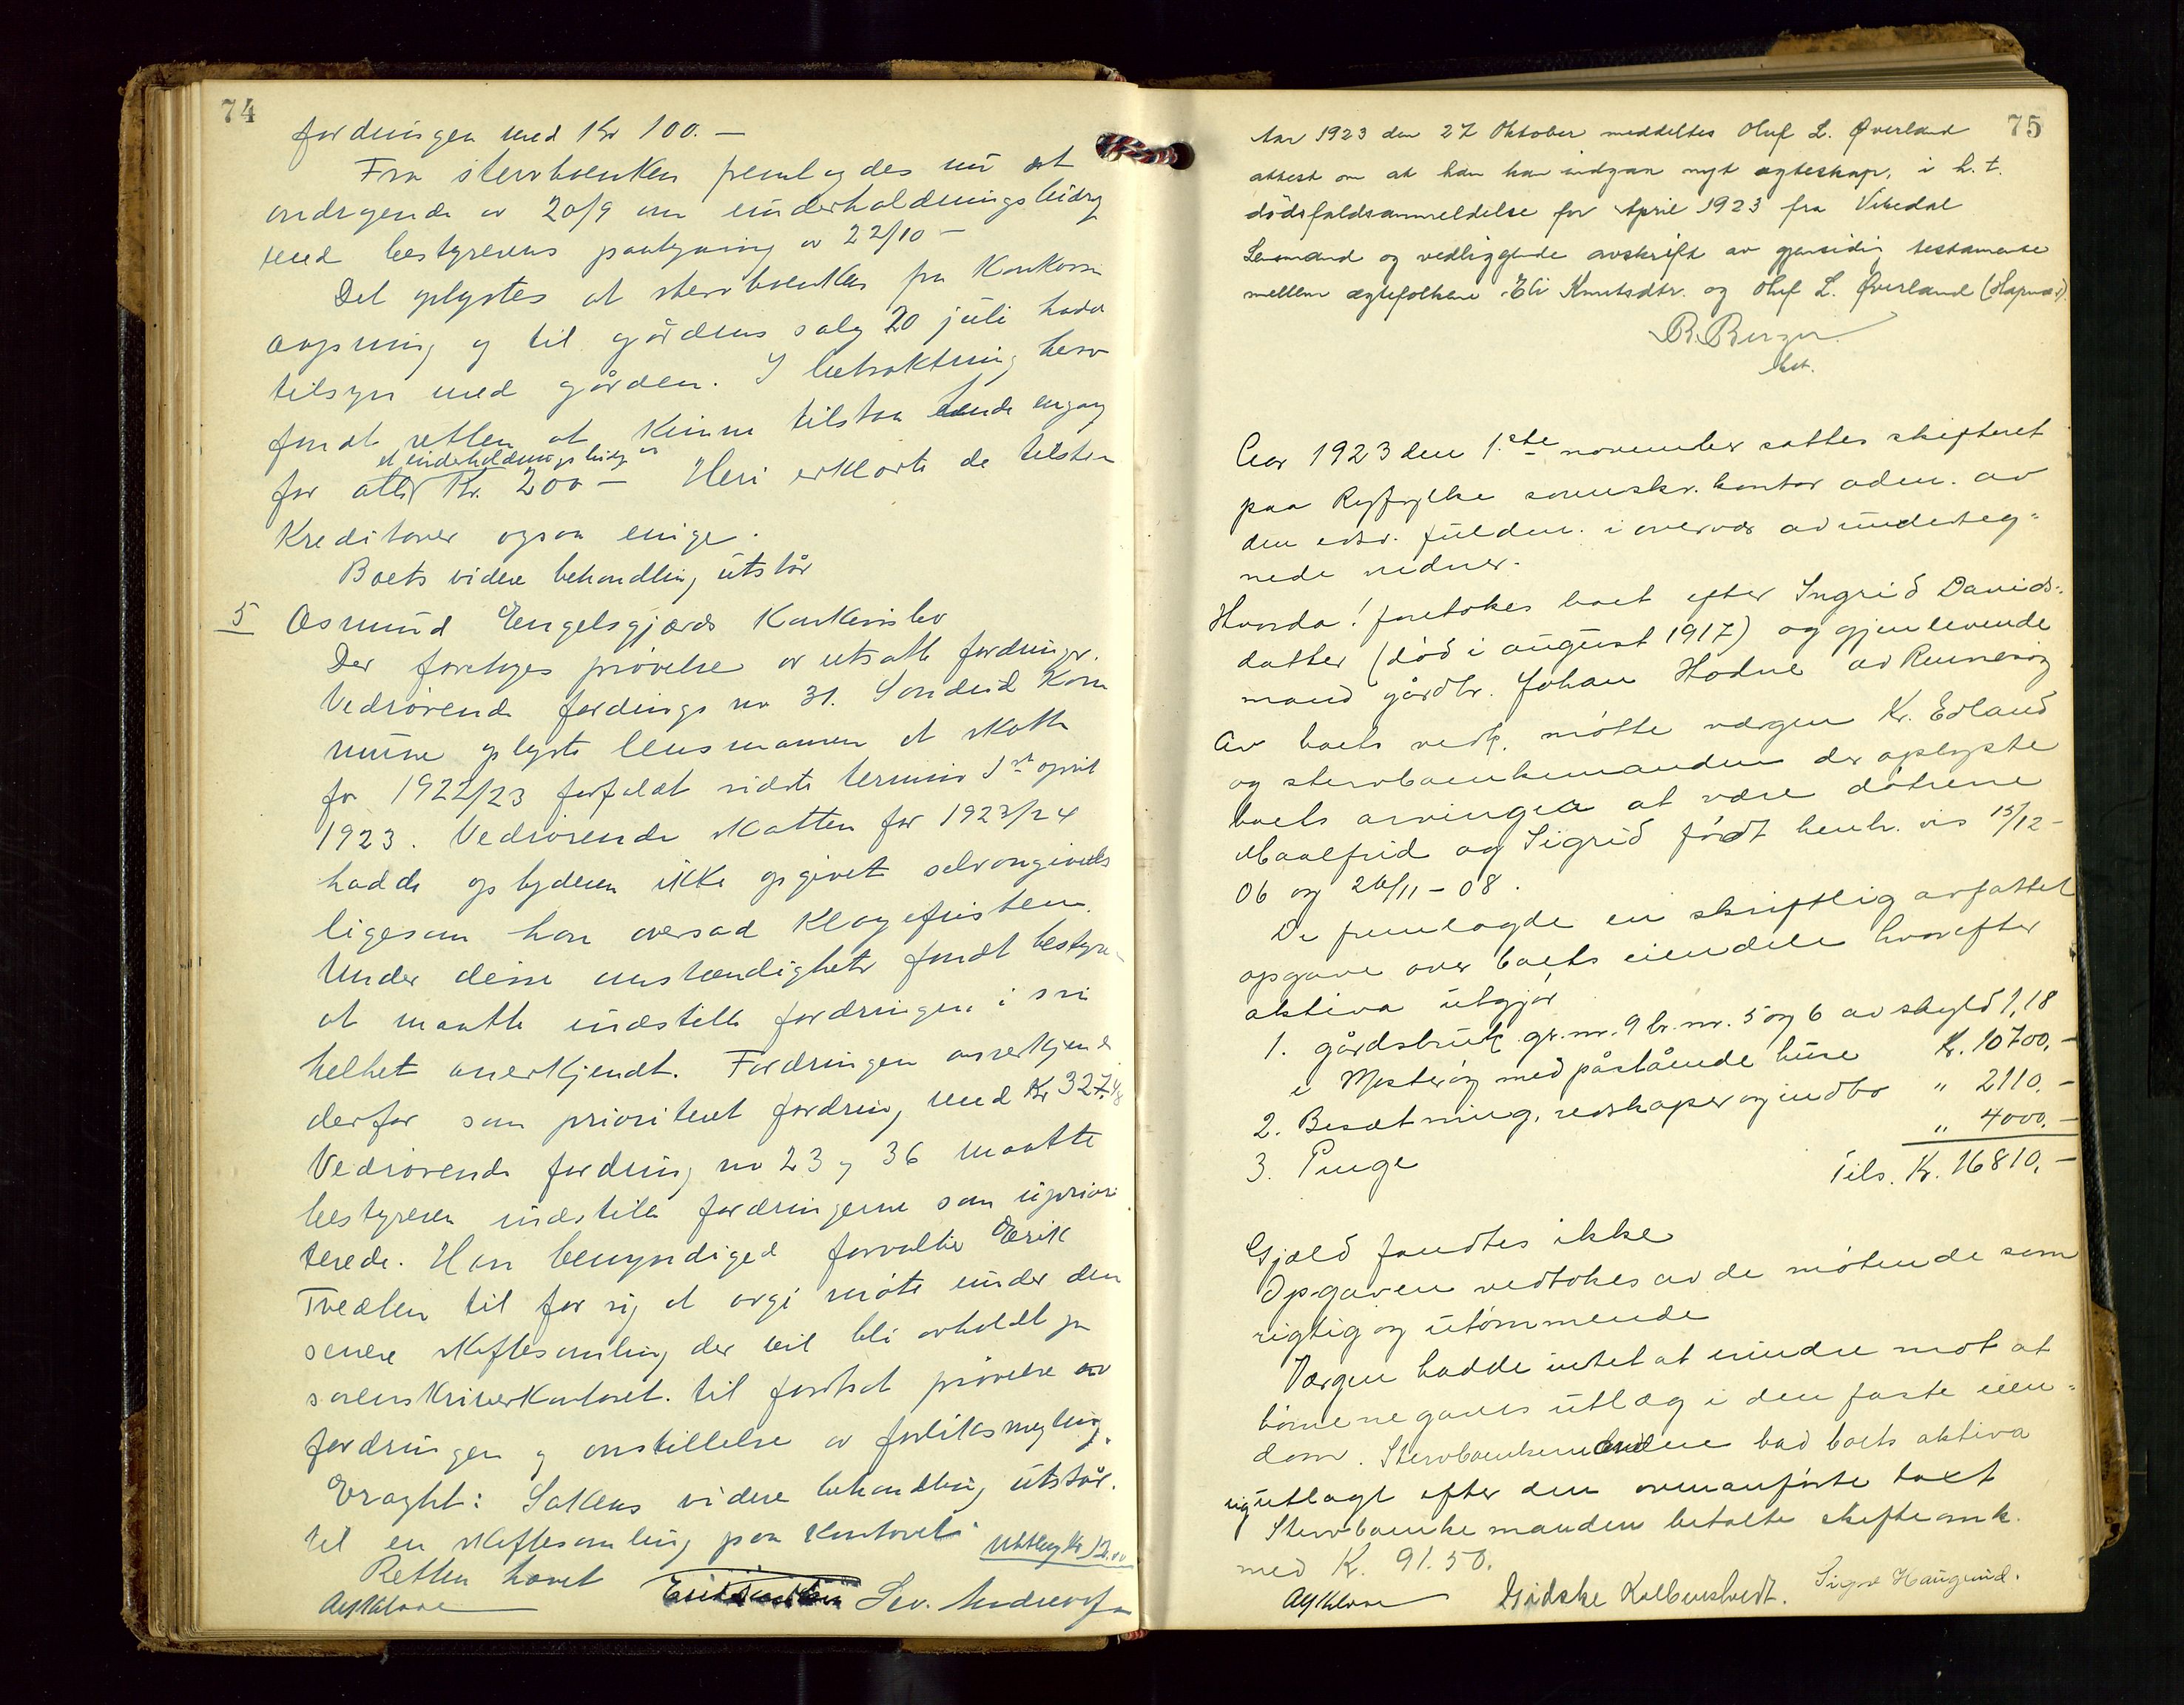 74
fordringen med Kr 100. —
Fra stervboenken fremlagdes nu et
andragende av 20/9 om underholdningsbidrag
med bestyrerens paategning av 22/10 —
Det oplystes at stervboenken fra Konkurs
aapning og til gårdens salg 20 juli hadde
tilsyn med gården. I betraktning herav
fandt retten at kunne tilstaa hende engang
et underholdningsbidrag av
for alle Kr. 200 — Heri erklærte de tilste
Kreditorer ogsaa enige.
Boets videre behandling utstår
5 Osmund Engelsgjærds Konkursbo
Der foretoges prøvelse av utsatte fordringer.
Vedrørende fordrings no 31. Sondeid Kom
mune oplyste lensmannen at skatte
for 1922/23 forfaldt sidste termin 1st april
1923. Vedrørende skatten for 1923/24
hadde opbyderen ikke opgivet selvangivelse
ligesom han oversad klagefristen.
Under disse omstændigheter fandt bestyre-
at maatte indstille fordringen i sin
helhet anerkjendt. Fordringen anerkjendes
derfor som prioritert fordring med Kr 327.48
Vedrørende fordring no 23 og 36 maatte
bestyreren indstille fordringerne som upriori
terede. Han bemyndiged forvalter Erik
Tveden til for sig at avgi møte under den
senere skiftesamling der vil bli avholdt paa
sorenskriverkontoret. til fortsat prøvelse av
fordringer og anstillelse av forliksmegling.
Eragtet: Sakens videre behandling utstår.
til en skiftesamling paa kontoret. Utlæg Kr 12.00
Retten hævet
Sev. Andreassen
75
Aar 1923 den 27 Oktober meddeltes Oluf L. Øverland
attest om at han kan indgaa nyt ægteskap, i h. t.
dödsfaldsanmeldelse for April 1923 fra Vikedal
Lensmand og vedliggende avskrift av gjensidig testamente
mellem ægtefolkene Eli Knutsdtr. og Oluf L. Øverland
B. Berger
kst.
Aar 1923 den 1.ste november sattes skifteret
paa Ryfylke sorenskr. kontor adm. av
den edsv. fuldm. i overvær av underteg-
nede vidner.
Hvorda! foretokes boet efter Ingrid Davids-
datter (död i august 1917) og gjenlevende
mand gårdbr. Johan Hodne av Rennesöy
Av boets vedk. mötte værgen Kr. Edland
og stervboenkemanden der oplyste
boets arvinger at være dötrene
Maalfrid og Sigrid födt henh. vis 15/12 -
06 og 26/11 - 08.
De fremlagde en skriftlig avfattet
opgave over boets eiendele hvorefter
aktiva utgjör
1. gårdsbruk gr. nr. 9 br. nr. 5 og 6 av skyld 1,18
i Mosteröy med påstående huse Kr. 10700,-
2. Besætning, redskaper og indbo " 2110.-
3. Penge " 4000.-
Tils. Kr. 16810,-
Gjæld fandtes ikke
Opgaven vedtokes av de mötende som
rigtig og utömmende
Værgen hadde intet at erindre mot at
börnene gaves utlæg i den faste eien-
dom. Stervboenkemanden bad boets aktiva
sig utlagt efter den ovenanförte takst
Stervboenkemanden betalte skifteomk.
med Kr. 91.50.
Gidske Kolbenstvedt. Signe Haugeund.